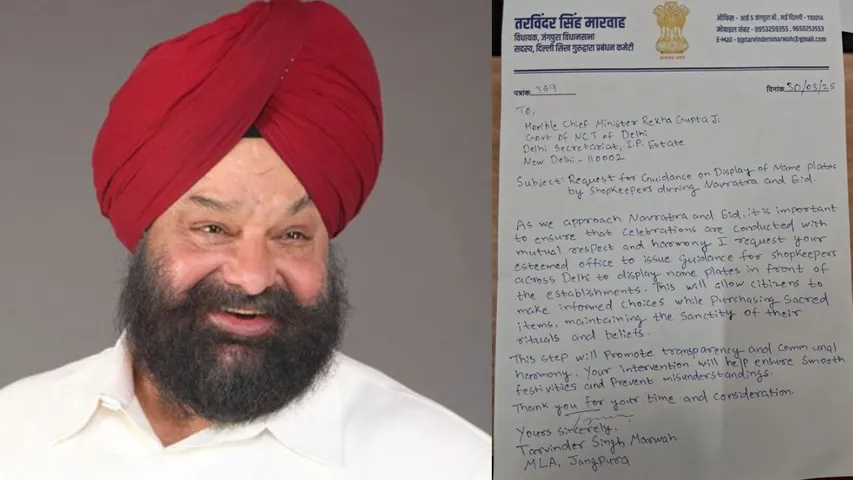 तरविंदर सिंह मारवाह
विधायक, जंगपुरा विधानसभा
सदस्य, दिल्ली सिख गुरुद्वारा प्रबंधन कमेटी
मोबाइल नंबर - 9953259355, 9650253553
E-Mail - bjptarvindersmarwah@gmail.com
पत्रांक 369
दिनांक 30/03/25
To,
Hon'ble Chief Minister Rekha Gupta Ji
Govt of NCT of Delhi
Delhi Secretariat, I.P. Estate
New Delhi - 110002
Subject: Request for Guidance on Display of Name Plates
by Shopkeepers during Navratra and Eid.
As we approach Navratra and Eid, it is important
to ensure that celebrations are conducted with
mutual respect and harmony I request your
esteemed office to issue guidance for shopkeepers
across Delhi to display name plates in front of
the establishments. This will allow citizens to
make informed choices while purchasing sacred
items, maintaining the sanctity of their
rituals and beliefs.
This step will Promote transparency and communal
harmony. Your intervention will help ensure smooth
festivities and Prevent misunderstandings.
Thank you for your time and consideration.
Yours sincerely,
Tarvinder Singh Marwah
MLA, Jangpura